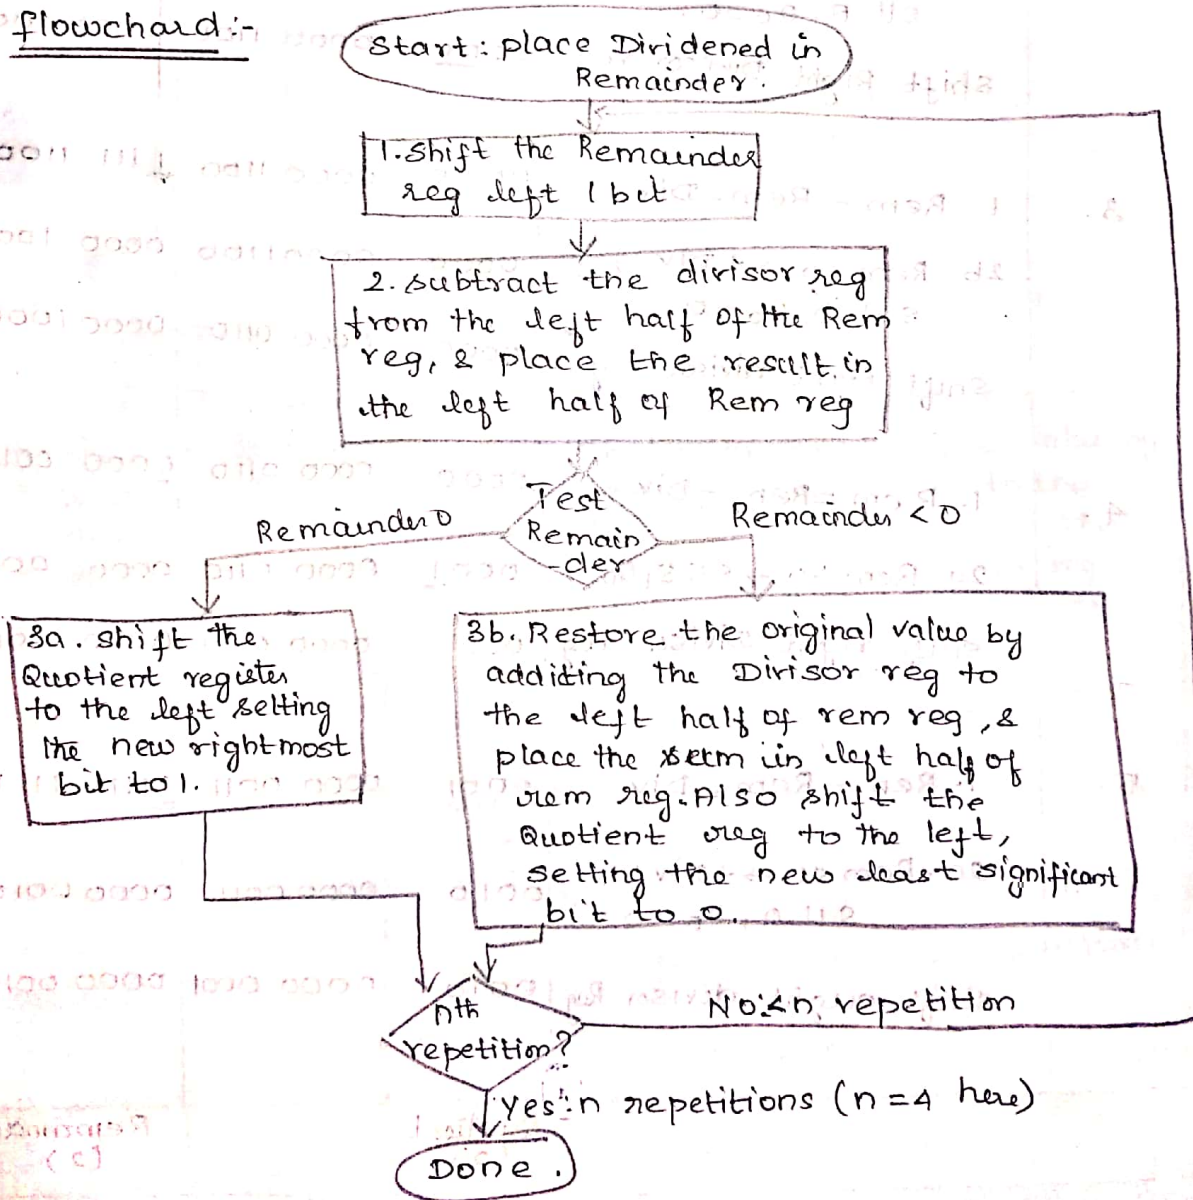 flowchard :-
Start : place Dividened in
Remainder .
1. Shift the Remainder
reg left 1 bit
2. subtract the divisor reg
from the left half of the Rem
reg, & place the result in
the left half of Rem reg
Test
Remain
-der
Remainder 0
Remainder < 0
3a. Shift the
Quotient register
to the left setting
the new rightmost
bit to 1.
3b. Restore the original value by
addiding the Divisor reg to
the left half of rem reg , &
place the sum in left half of
rem reg. Also shift the
Quotient reg to the left,
setting the new least significant
bit to 0.
nth
repetition?
No: < n repetition
Yes: n repetitions (n = 4 here)
Done .